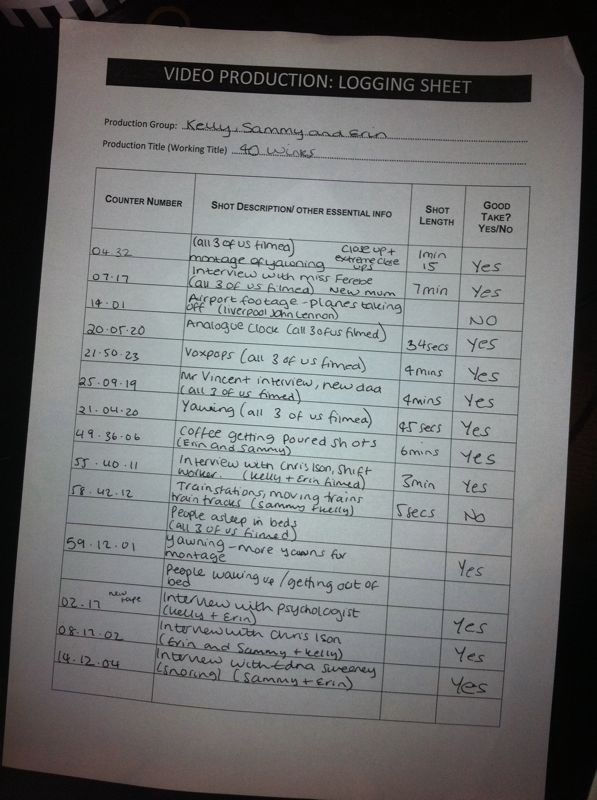 VIDEO PRODUCTION: LOGGING SHEET
Production Group: Kelly, Sammy and Erin
Production Title (Working Title) 40 winks
COUNTER NUMBER
SHOT DESCRIPTION/ OTHER ESSENTIAL INFO
SHOT
LENGTH
GOOD
TAKE?
YES/NO
04.32
(all 3 of us filmed) close up +
montage of yawning extreme close
ups
1min
15
Yes
07.17
Interview with miss Ferebe
(all 3 of us filmed) New mum
7min
Yes
14.01
Airport footage - planes taking
off (liverpool John Lennon)
NO
20.05.20
Analogue clock (all 3 of us filmed)
34secs
Yes
21.50.23
Voxpops (all 3 of us filmed)
4mins
Yes
25.09.19
Mr Vincent interview, new dad
(all 3 of us filmed)
4mins
Yes
21.04.20
Yawing (all 3 of us filmed)
45 secs
Yes
49.36.06
Coffee getting poured shots
(Erin and Sammy)
6mins
Yes
55.40.11
Interview with Chris Ison, shift
worker. (Kelly + Erin filmed)
3min
Yes
58.42.12
Train stations, moving trains
train tracks (sammy + kelly)
5secs
No
People asleep in beds
(all 3 of us filmed)
59.12.01
yawning - more yawns for
montage
Yes
People waking up / getting out of
bed
02.17 new tape
Interview with psychologist
(Kelly + Erin)
Yes
08.17.02
Interview with Chris Ison
(Erin and Sammy + Kelly)
Yes
14.12.04
Interview with Edna Sweeney
(snoring) (Sammy + Erin)
Yes